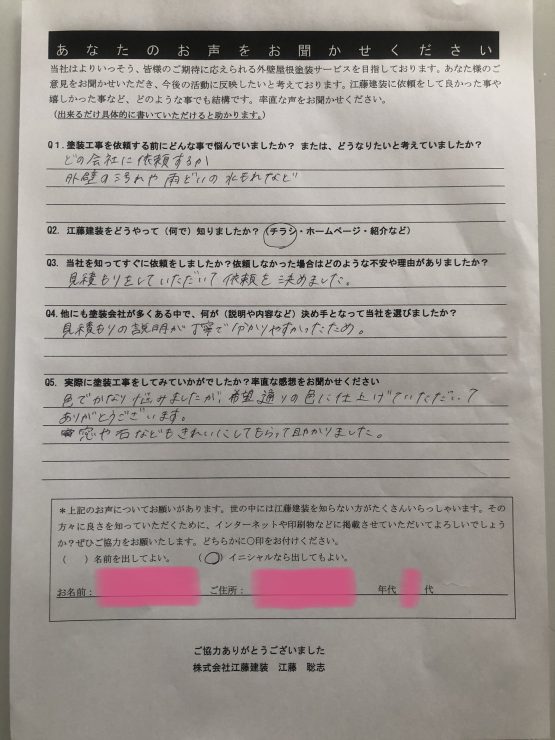 あなたのお声をお聞かせください
当社はよりいっそう、皆様のご期待に応えられる外壁屋根塗装サービスを目指しております。あなた様のご
意見をお聞かせいただき、今後の活動に反映したいと考えております。江藤建装に依頼をして良かった事や
嬉しかった事など、どのような事でも結構です。率直な声をお聞かせください。
(出来るだけ具体的に書いていただけると助かります。)
Q1.塗装工事を依頼する前にどんな事で悩んでいましたか? または、どうなりたいと考えていましたか?
どの会社に依頼するか
外壁の汚れや雨どいの水もれなど
Q2. 江藤建装をどうやって(何で)知りましたか?(チラシ・ホームページ・紹介など)
Q3. 当社を知ってすぐに依頼をしましたか?依頼しなかった場合はどのような不安や理由がありましたか?
見積もりをしていただいて依頼を決めました。
Q4.他にも塗装会社が多くある中で、何が(説明や内容など)決め手となって当社を選びましたか?
見積もりの説明が丁寧で分かりやすかったため。
Q5. 実際に塗装工事をしてみていかがでしたか?率直な感想をお聞かせください
色でかなり悩みましたが、希望通りの色に仕上げていただいて
ありがとうございます。
窓や石などもきれいにしてもらって助かりました。
*上記のお声についてお願いがあります。世の中には江藤建装を知らない方がたくさんいらっしゃいます。その
方々に良さを知っていただくために、インターネットや印刷物などに掲載させていただいてよろしいでしょう
か?ぜひご協力をお願いたします。どちらかに〇印をお付けください。
( )名前を出してよい。 (〇)イニシャルなら出してもよい。
お名前: ご住所: 年代 代
ご協力ありがとうございました
株式会社江藤建装 江藤 聡志